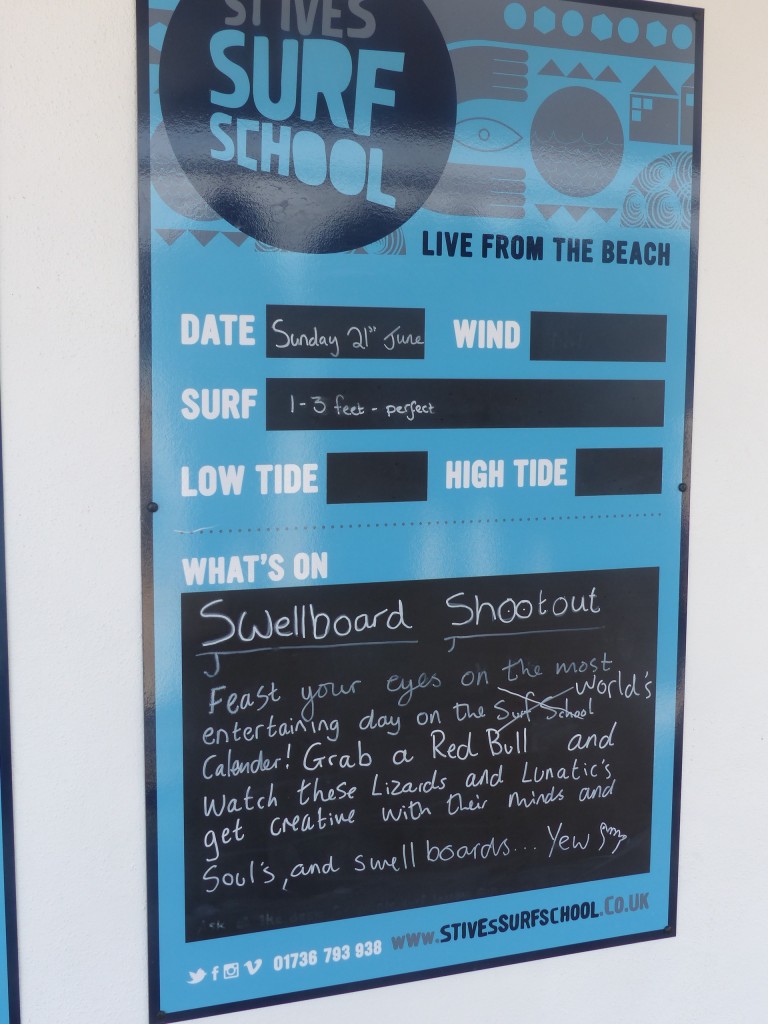 ST IVES
SURF
SCHOOL
LIVE FROM THE BEACH
DATE Sunday 21st June WIND
SURF 1-3 feet - perfect
LOW TIDE HIGH TIDE
WHAT'S ON
Swellboard Shootout
Feast your eyes on the most
entertaining day on the Surf School World's
Calender! Grab a Red Bull and
Watch these Lizards and Lunatic's
get creative with their minds and
Soul's, and swell boards... Yew
01736 793 938 www.STIVESSURFSCHOOL.CO.UK